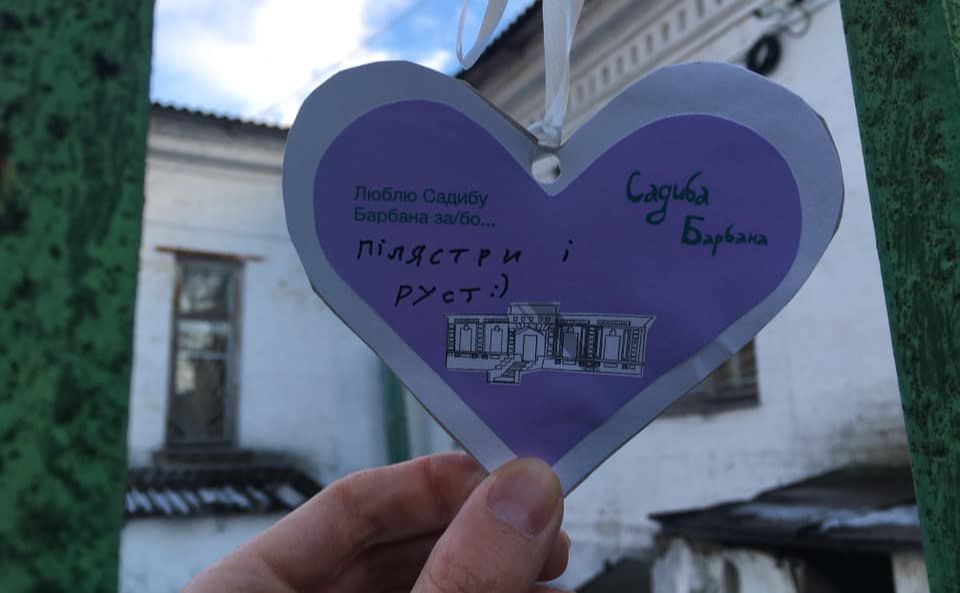 Люблю Садибу
Барбана за/бо...
пілястри і
руст:)
Садиба
Барбана